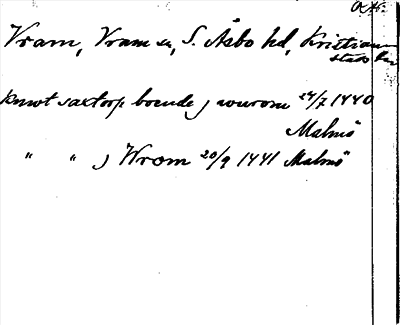 Vram, Vram sn, S. Åsbo hd, Kristian
stads län
knwt saxtorp boende j wurom 24/7 1440
Malmö
" " j Wrom 20/9 1441 Malmö